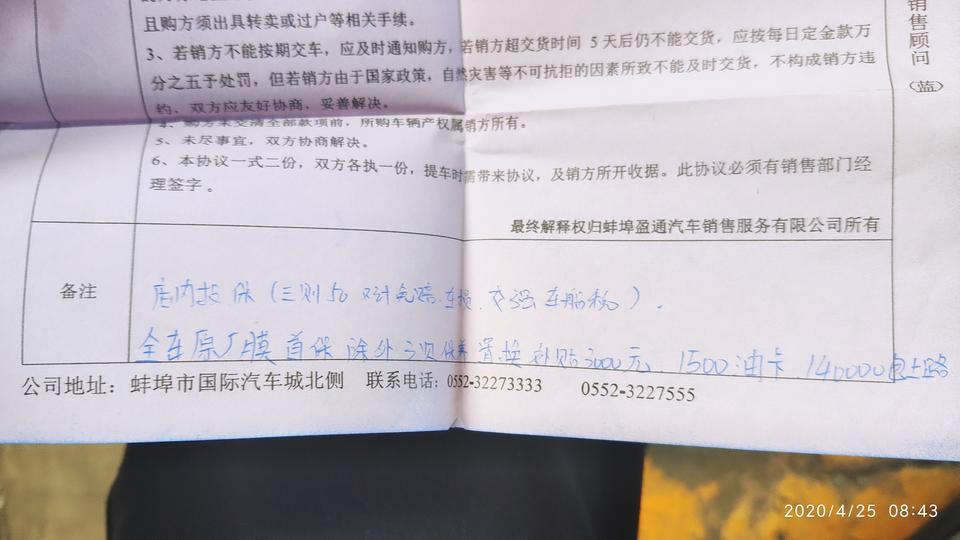 且购方须出具转卖或过户等相关手续。
3、若销方不能按期交车，应及时通知购方，若销方超交货时间 5 天后仍不能交货，应按每日定金款万
分之五予处罚，但若销方由于国家政策，自然灾害等不可抗拒的因素所致不能及时交货，不构成销方违
约，双方应友好协商，妥善解决。
4、购方未交清全部款项前，所购车辆产权属销方所有。
5、未尽事宜，双方协商解决。
6、本协议一式二份，双方各执一份，提车时需带来协议，及销方所开收据。此协议必须有销售部门经
理签字。
最终解释权归蚌埠盈通汽车销售服务有限公司所有
备注
店内投保（三则50 不计免赔.车损.交强车船税）.
全车原厂膜 首保除外三次保养 置换补贴3000元.1500油卡.140000包上路
公司地址：蚌埠市国际汽车城北侧 联系电话：0552-32273333 0552-3227555
销售顾问（蓝）
2020/4/25 08:43